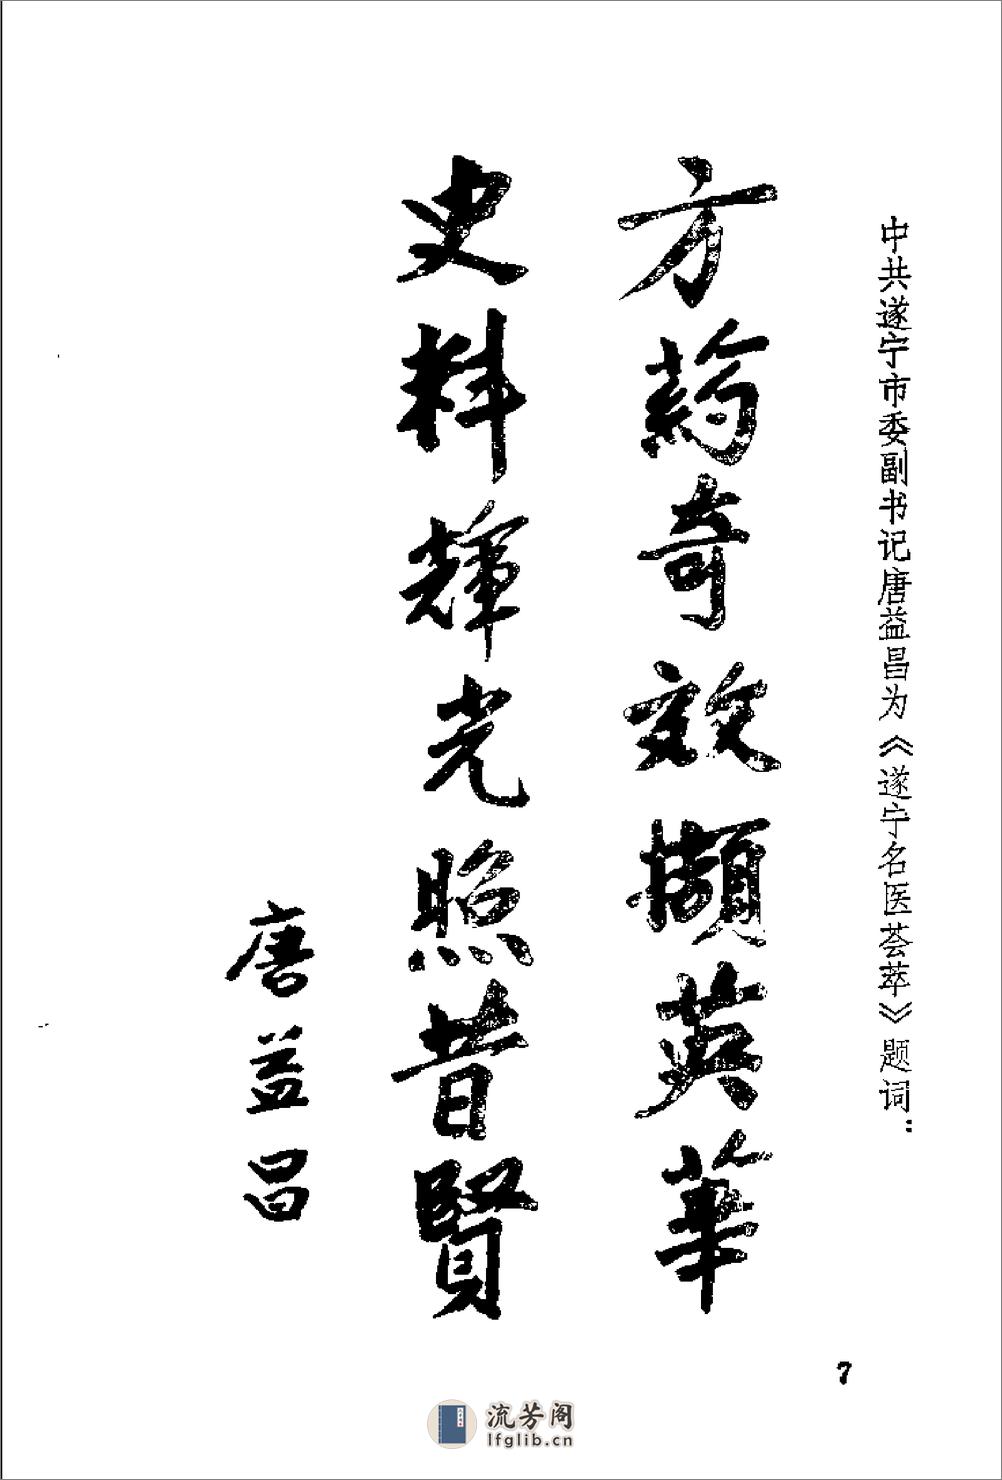 中共遂宁市委副书记唐益昌为《遂宁名医荟萃》题词：
方药奇效擷英華
史料輝光照昔賢
唐益昌
7
流芳阁
lfglib.cn